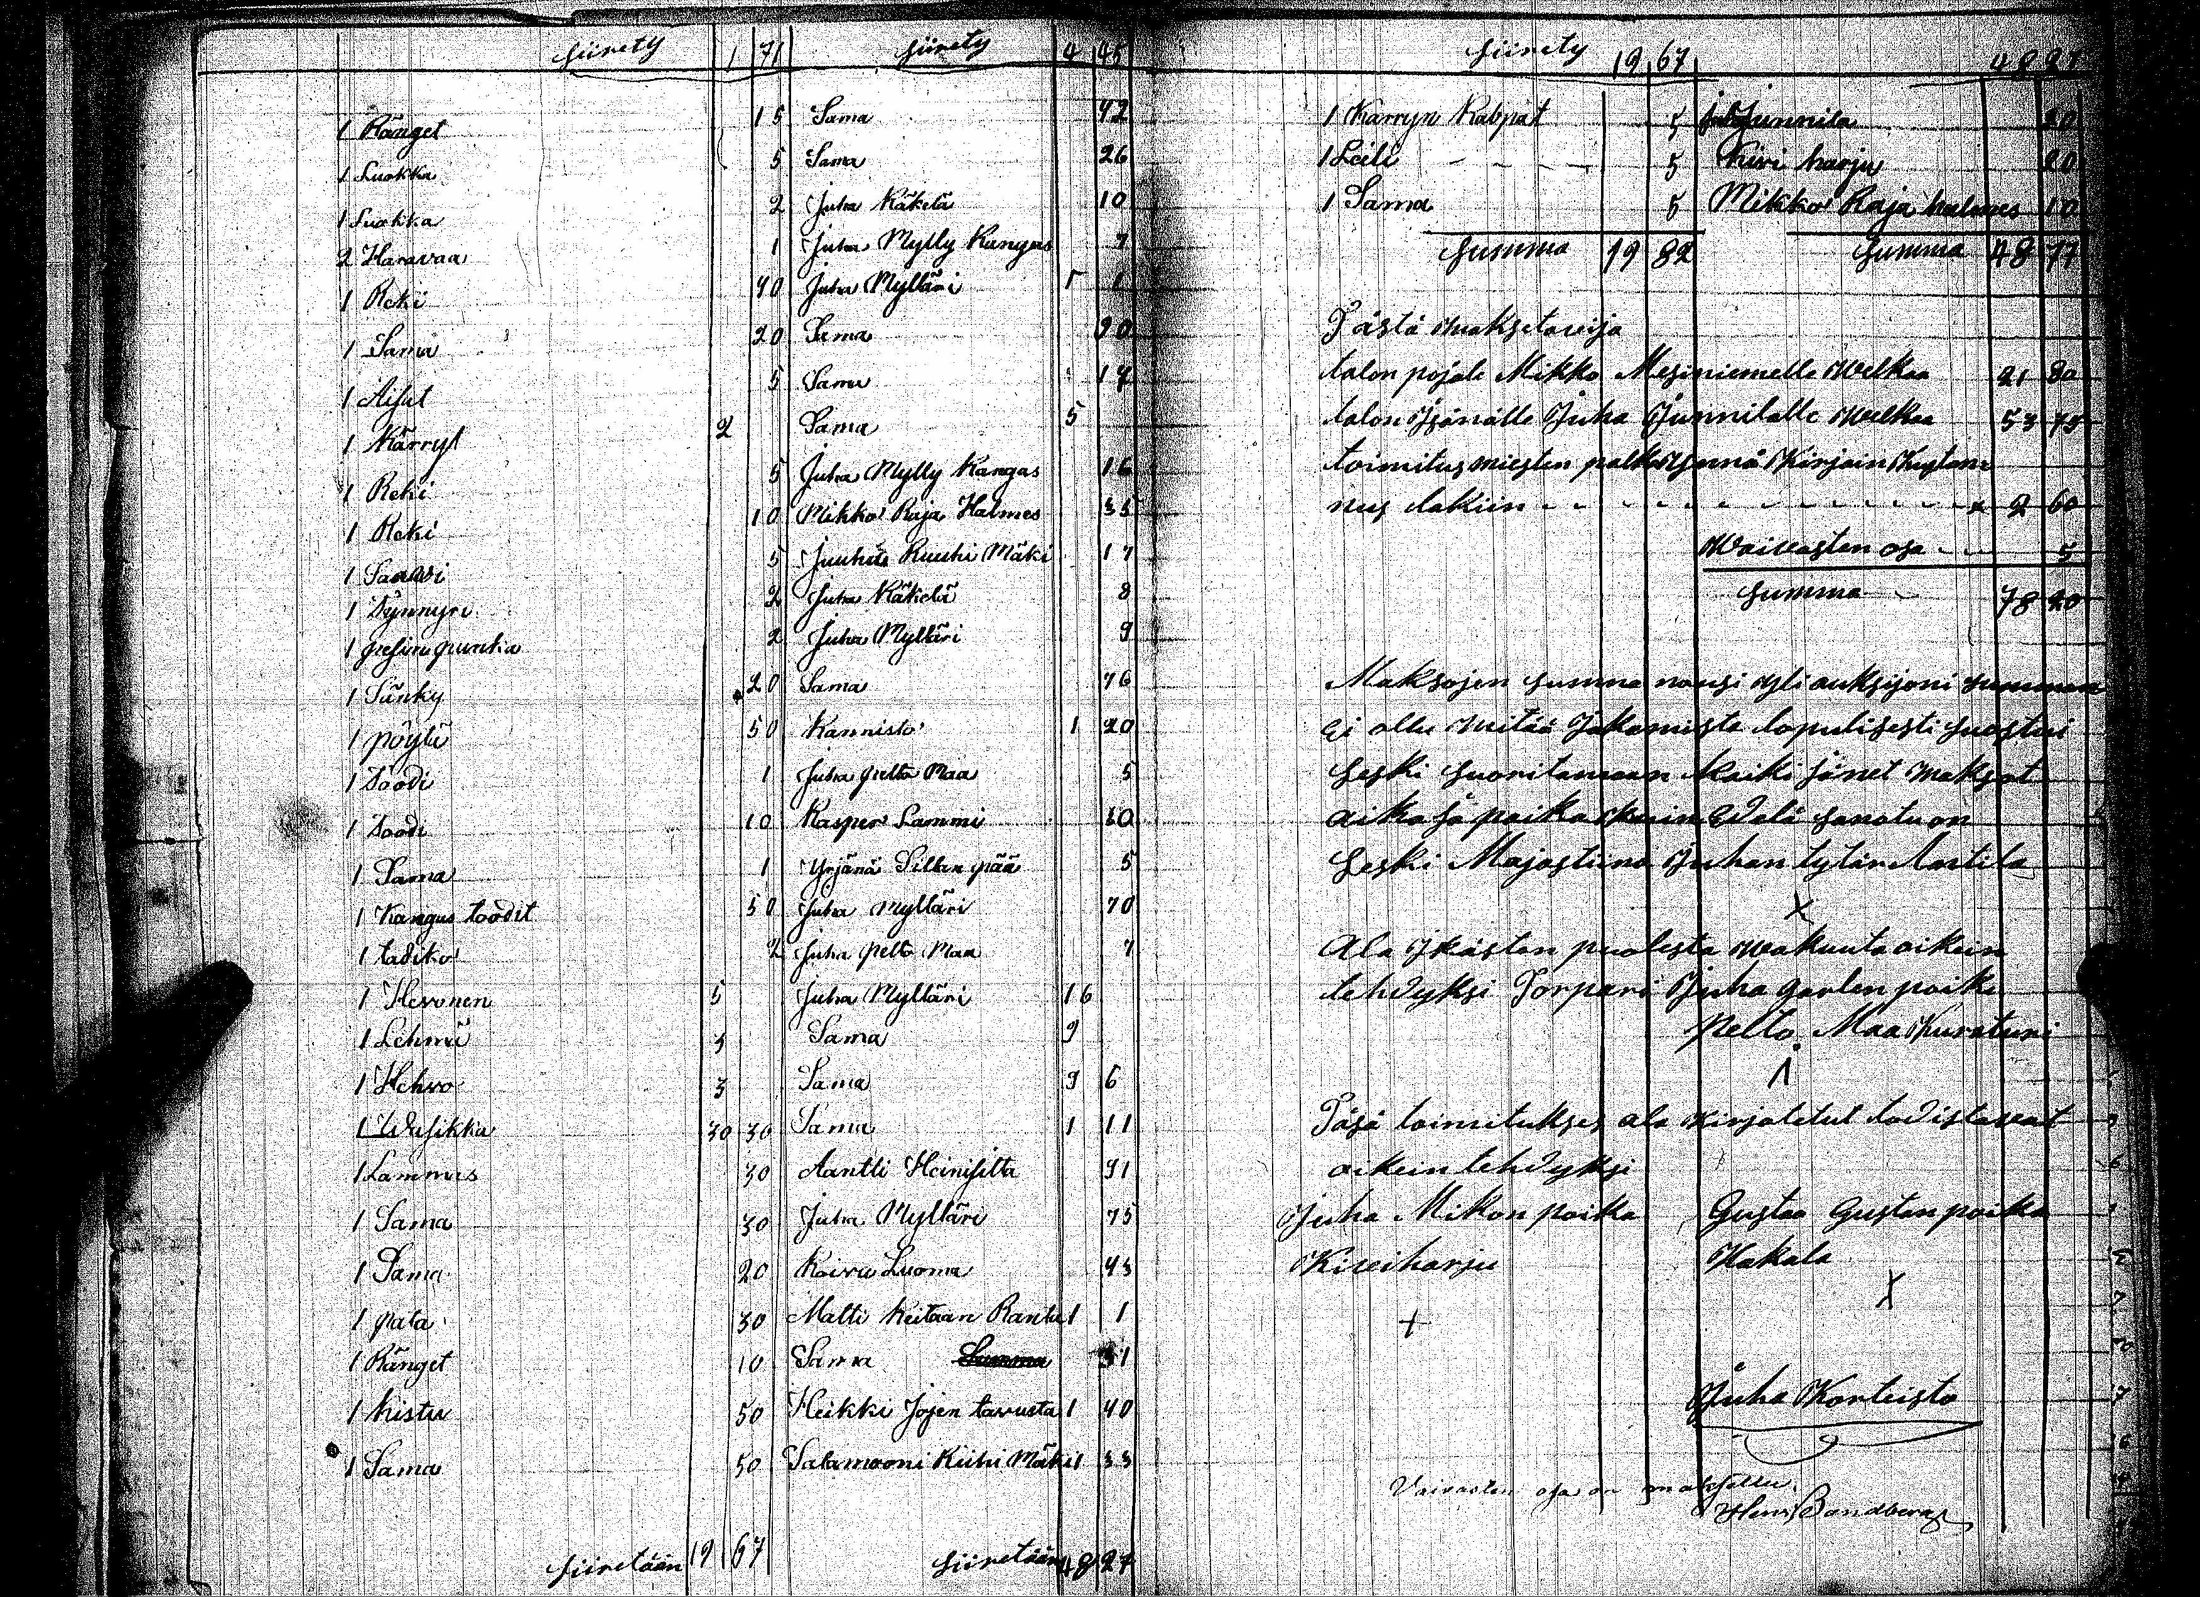 siirety 1 71 siirety 4 45
1 Ränget 15 Sama 42
1 Luokka 5 Sama 26
1 Luokka 2 Juha Käkelä 10
2 Haravaa 1 Juha Mylly Kangas 7
1 Reki 40 Juha Mylläri 1 1
1 Sama 20 Sama 90
1 Aisat 5 Sama 17
1 Kärryt 2 Sama 5
1 Reki 5 Juha Mylly Kangas 16
1 Reki 10 Mikko Raja Halmes 35
1 Saavi 5 Juuha Ruuhi Mäki 17
1 Tynnyri 2 Juha Käkelä 8
1 pesin punka 2 Juha Mylläri 9
1 Sänky 20 Sama 76
1 pöytä 50 Kannisto 1 20
1 Söödi 1 Juha pelto Maa 5
1 Soodi 10 Kasper Lammi 10
1 Sama 1 Yrjänä Sillan pää 5
1 Kangas toodit 50 Juha Mylläri 70
1 tadiko 2 Juha pelto Maa 7
1 Hevonen 5 Juha Mylläri 16
1 Lehmä 3 Sama 9
1 Hehvo 3 Sama 9 6
1 Wasikka 30 30 Sama 1 11
1 Lammas 30 Aantti Heinisilta 91
1 Sama 30 Juha Mylläri 75
1 Sama 20 Koivu Luoma 43
1 pata 30 Matti Keitaan Ranta 1 1
1 Ränget 10 Sama Summa 31
1 Kistu 50 Heikki Jojen tavusta 1 40
1 Sama 50 Salamooni Kiihi Mäki 1 33
siiretään 19 67 siiretään 48 27
siirety 19 67 48 27
1 Kärryn Ratpat 5 Junnila 20
1 Leili 5 Kivi harju 20
1 Sama 5 Mikko Raja halmes 10
Summa 19 82 Summa 48 77
Tästä maksetavija
talon pojale Mikko Mesiniemelle Welkaa 21 80
talon Isänälle Juha Junnilalle Welkaa 53 75
toimitusmiesten palka ynnä Kirjain Kustan
nus lakiin 2 60
Waivasten osa 5
Summa 78 20
Maksojen summa nousi yli auksijoni summan
Ei ollu mitää Jakamista lopulisesti suostui
Leski suoritamaan kaiki sänet maksot
aika ja paika kuin Edelä sanotu on
Leski Majastiina Juhan tytär Antila
X
Ala Ikästen puolesta wakuuta oikein
tehdyksi Torpari Juha Garlen poika
Pelto Maa Kuraturi
Λ
Täsä toimitukses ala Kirjotetut todistavat
oikein tehdyksi
Juha Mikon poika Gustaa Gustan poika
Kiviharju Hakala
+ X
Juha Korteisto
Vaivasten osa on maksettu.
Henr. Sandberg